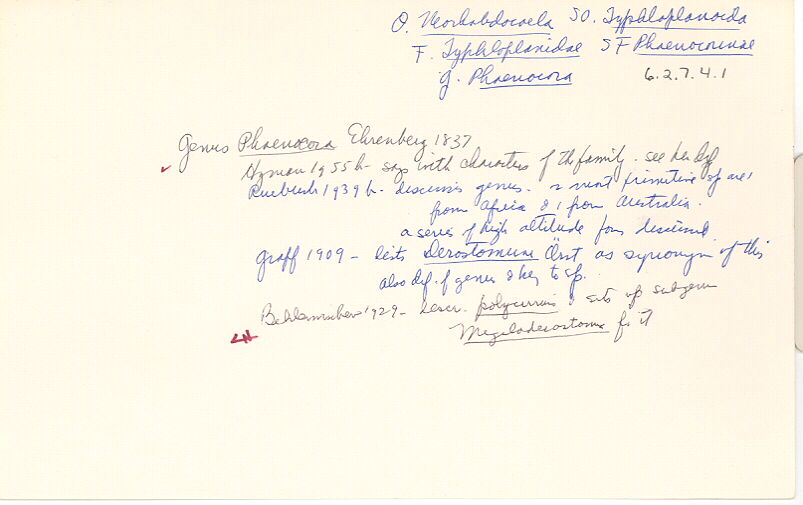 O. Neorhabdocoela SO. Typhloplanoida
F. Typhloplanidae SF Phaenocorinae
g. Phaenocora 6.2.7.4.1
Genus Phaenocora Ehrenberg 1837
Hyman 1955 h- says with characters of the family. see her def
Ruebush 1939 h- discusses genus. 2 most primitive sp are 1
from Africa & 1 from Australia.
a series of high altitude forms discussed
Graff 1909 - lists Derostomum Örst as synonym of this
also def. of genus & key to sp.
1929- descr. & sets up subgenus
Megaloderostoma for it